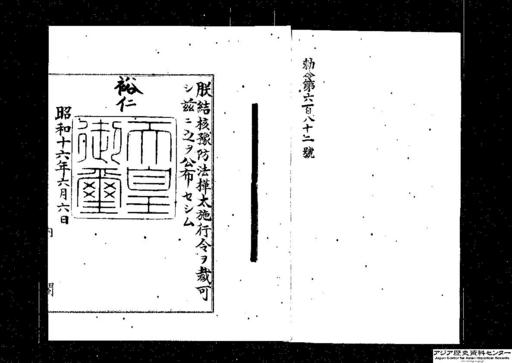 勅令第六百八十二號
朕結核豫防法樺太施行令ヲ裁可
シ茲ニ之ヲ公布セシム
裕仁
天皇
御璽
昭和十六年六月六日
内閣
アジア歴史資料センター
Japan Center for Asian Historical Records